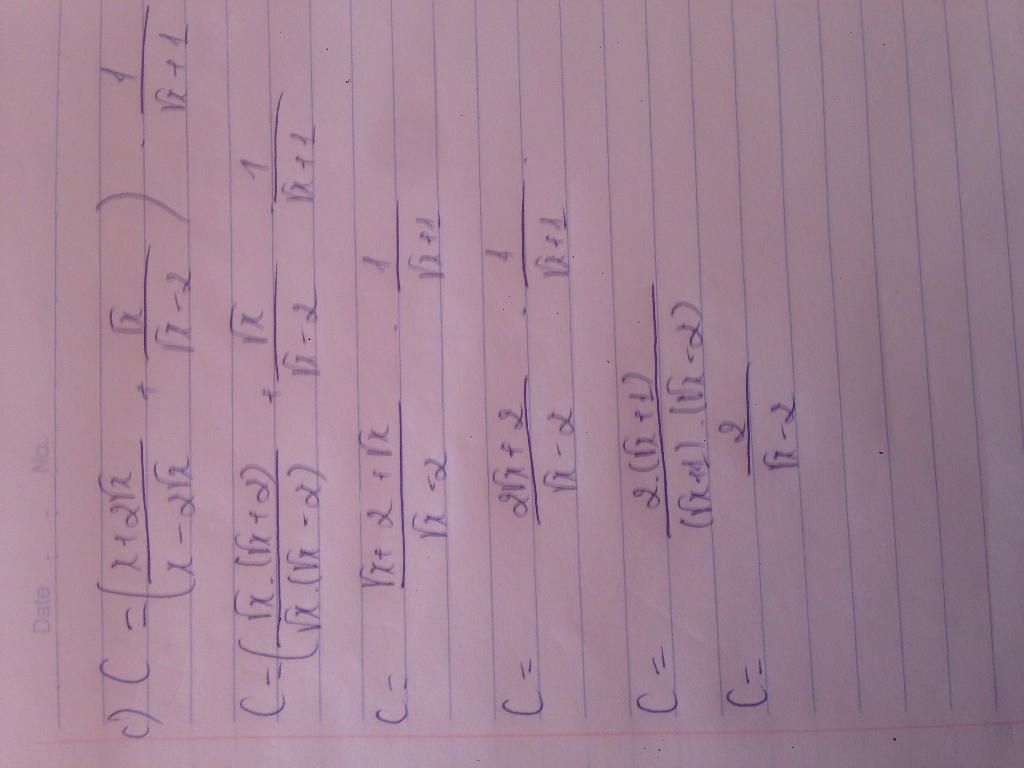 Date . . No.
c) C = ( (x+2√x)/(x-2√x) + √x/(√x-2) ) . 1/(√x+1)
C = ( (√x.(√x+2))/(√x.(√x-2)) + √x/(√x-2) . 1/(√x+1)
C = (√x+2+√x)/(√x-2) . 1/(√x+1)
C = (2√x+2)/(√x-2) . 1/(√x+1)
C = (2.(√x+1))/((√x+1).(√x-2))
C = 2/(√x-2)